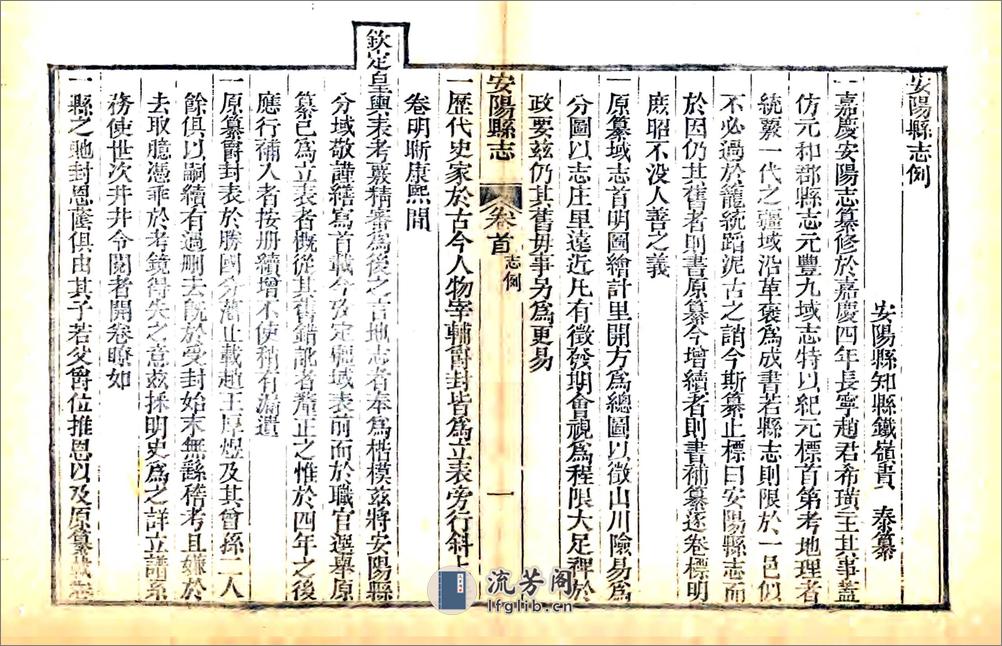 安陽縣志例
安陽縣知縣鐵嶺貴 泰纂
一嘉慶安陽志纂修於嘉慶四年長寧趙君希璜主其事蓋
仿元和郡縣志元豐九域志特以紀元標首第考地理者
統覈一代之疆域沿革裒為成書若縣志則限於一邑似
不必過於籠統蹈泥古之誚今斯纂止標曰安陽縣志而
於因仍其舊者則書原纂今增續者則書補纂逐卷標明
庶昭不没人善之義
一原纂域志首明圖繪計里開方為總圖以徵山川險易為
分圖以志庄里遠近凡有徵發期會視為程限大足裨於
政要茲仍其舊毋事另為更易
安陽縣志
卷首
志例
一
一歷代史家於古今人物宰輔爵封皆為立表旁行斜上
卷明晰康熙間
欽定皇輿表考覈精審為後之言地志者奉為楷模茲將安陽縣
分域敬謹繕寫首載今攷定疆域表前而於職官選舉原
纂已為立表者概從其舊錯訛者釐正之惟於四年之後
應行補入者按册續增不使稍有漏遺
一原纂爵封表於勝國分藩止載趙王厚煜及其曾孫二人
餘俱以嗣續有過刪去既於受封始末無繇稽考且嫌於
去取臆憑乖於考鏡得失之意茲採明史為之詳立譜系
務使世次井井令閱者開卷瞭如
一縣之貤封恩蔭俱由其子若父爵位推恩以及原纂
流芳阁
lfglib.cn